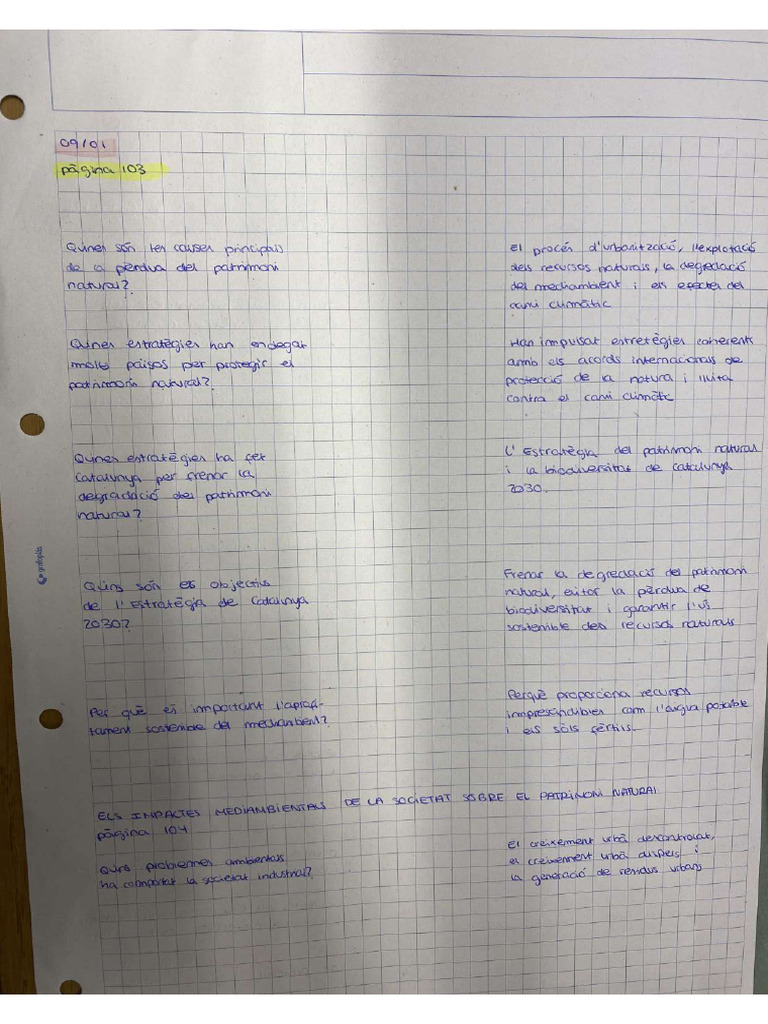 09/01
pàgina 103
Quines són les causes principals
de la pèrdua del patrimoni
natural?
El procés d'urbanització, l'explotació
dels recursos naturals, la degradació
del mediambient i els efectes del
canvi climàtic
Quines estratègies han endegat
molts països per protegir el
patrimoni natural?
Han impulsat estretègies coherents
amb els acords internacionals de
protecció de la natura i lluita
contra el canvi climàtic
Quines estratègies ha fet
Catalunya per frenar la
degradació del patrimoni
natural?
L'Estratègia del patrimoni natural
i la biodiversitat de Catalunya
2030.
Quins són els objectius
de l'Estratègia de Catalunya
2030?
Frenar la degradació del patrimoni
natural, evitar la pèrdua de
biodiversitat i garantir l'ús
sostenible dels recursos naturals
Per què és important l'aprofi-
tament sostenible del mediambient?
Perquè proporciona recursos
imprescindibles com l'aigua potable
i els sòls fèrtils.
ELS IMPACTES MEDIAMBIENTALS DE LA SOCIETAT SOBRE EL PATRIMONI NATURAL
pàgina 104
Quins problemes ambientals
ha comportat la societat industrial?
El creixement urbà descontrolat,
el creixement urbà dispers i
la generació de residus urbans
grafoplás